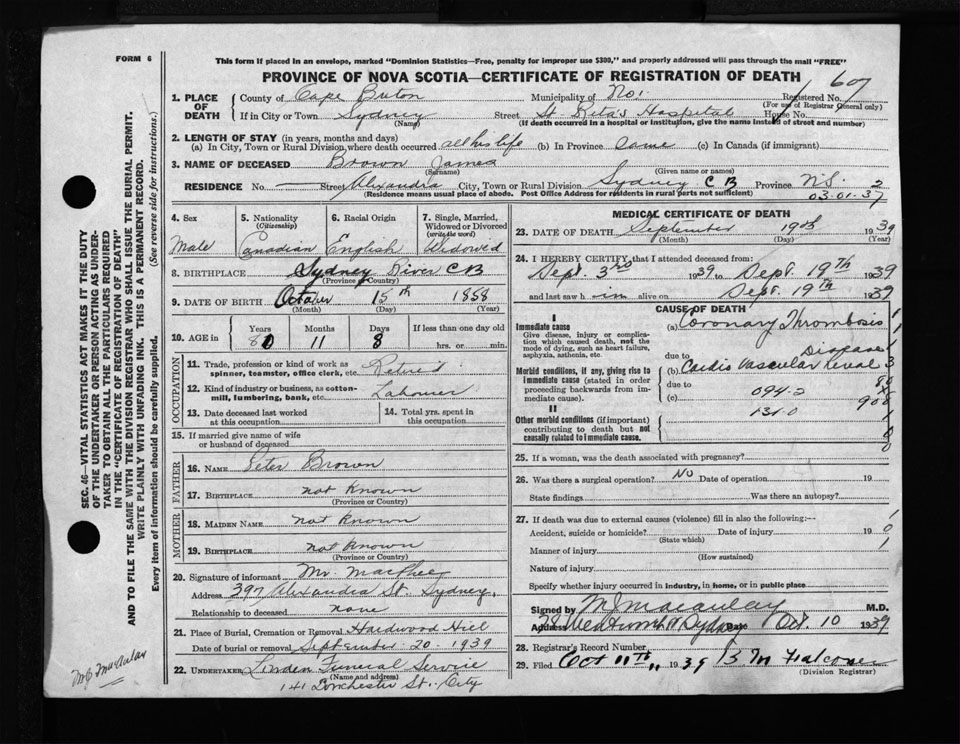 FORM 6
This form if placed in an envelope, marked "Dominion Statistics—Free, penalty for improper use $300," and properly addressed will pass through the mail "FREE"
PROVINCE OF NOVA SCOTIA—CERTIFICATE OF REGISTRATION OF DEATH
1. PLACE OF DEATH County of Cape Breton Municipality of No. 1 Registered No. 607
(For use of Registrar General only)
If in City or Town Sydney Street St. Rita's Hospital House No.
(Name) (If death occurred in a hospital or institution, give the name instead of street and number)
2. LENGTH OF STAY (in years, months and days)
(a) In City, Town or Rural Division, where death occurred all his life (b) In Province Same (c) In Canada (if immigrant)
3. NAME OF DECEASED Brown James
(Surname) (Given name or names)
RESIDENCE No. Street Alexandra City, Town or Rural Division Sydney C B Province N.S. 2
(Residence means usual place of abode. Post Office Address for residents in rural parts not sufficient) 03-01-37
4. Sex Male
5. Nationality (Citizenship) Canadian
6. Racial Origin English
7. Single, Married, Widowed or Divorced (write the word) Widowed
8. BIRTHPLACE Sydney River C B
(Province or Country)
9. DATE OF BIRTH October 15th 1858
(Month) (Day) (Year)
10. AGE in Years 80 Months 11 Days 8 If less than one day old
hrs. or min.
OCCUPATION
11. Trade, profession or kind of work as spinner, teamster, office clerk, etc. Retired
12. Kind of industry or business, as cotton-mill, lumbering, bank, etc. Labourer
13. Date deceased last worked at this occupation
14. Total yrs. spent in this occupation
15. If married give name of wife or husband of deceased
FATHER
16. NAME Peter Brown
17. BIRTHPLACE not Known
(Province or Country)
MOTHER
18. MAIDEN NAME not Known
19. BIRTHPLACE not Known
(Province or Country)
20. Signature of informant Mr. MacPhee
Address 397 Alexandra St. Sydney
Relationship to deceased none
21. Place of Burial, Cremation or Removal Hardwood Hill
Date of burial or removal September 20 1939
22. UNDERTAKER Linden Funeral Service
(Name and address)
141 Dorchester St. City
MEDICAL CERTIFICATE OF DEATH
23. DATE OF DEATH September 19th 1939
(Month) (Day) (Year)
24. I HEREBY CERTIFY that I attended deceased from:
Sept 3rd 1939 to Sept. 19th 1939
and last saw him alive on Sept. 19th 1939
CAUSE OF DEATH
I
Immediate cause
Give disease, injury or complication which caused death, not the mode of dying, such as heart failure, asphyxia, asthenia, etc.
(a) Coronary Thrombosis
due to
Morbid conditions, if any, giving rise to immediate cause (stated in order proceeding backwards from immediate cause).
(b) Cardio Vascular Renal Disease
due to
(c) 094-2
II
131-0
Other morbid conditions (if important) contributing to death but not causally related to immediate cause.
25. If a woman, was the death associated with pregnancy?
26. Was there a surgical operation? No Date of operation 19
State findings Was there an autopsy?
27. If death was due to external causes (violence) fill in also the following:—
Accident, suicide or homicide? Date of injury 19
(State which)
Manner of injury
(How sustained)
Nature of injury
Specify whether injury occurred in industry, in home, or in public place
Signed by M J Macaulay M.D.
Address Sydney Date Oct. 10 1939
28. Registrar's Record Number
29. Filed Oct 11th 1939 B M Falconer
(Division Registrar)
SEC. 46—VITAL STATISTICS ACT MAKES IT THE DUTY
OF THE UNDERTAKER OR PERSON ACTING AS UNDER-
TAKER TO OBTAIN ALL THE PARTICULARS REQUIRED
IN THE "CERTIFICATE OF REGISTRATION OF DEATH"
AND TO FILE THE SAME WITH THE DIVISION REGISTRAR WHO SHALL ISSUE THE BURIAL PERMIT.
WRITE PLAINLY WITH UNFADING INK. THIS IS A PERMANENT RECORD.
Every item of information should be carefully supplied. (See reverse side for instructions.)